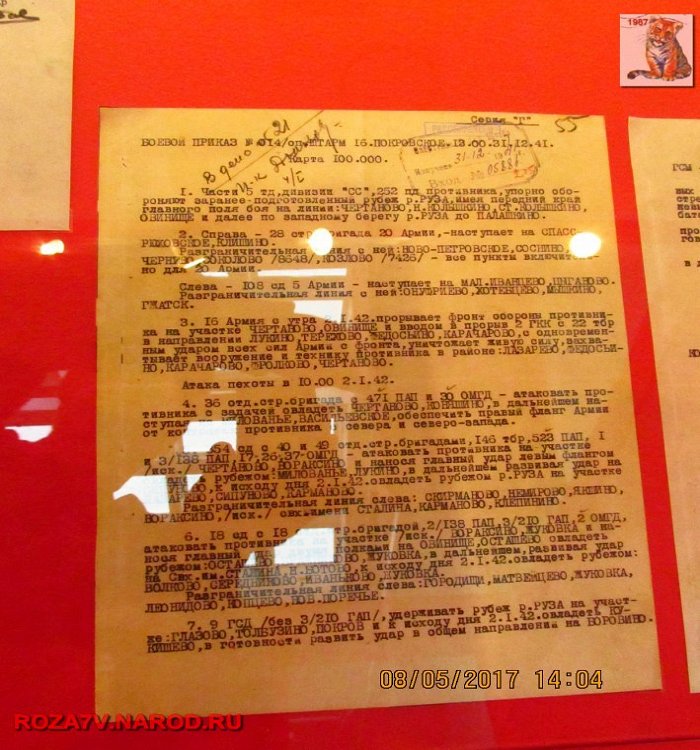 1967
Серия "Г"
55
БОЕВОЙ ПРИКАЗ № 014/оп.ШТАРМ 16.ПОКРОВСКОЕ.12.00.31.12.41.
Карта 100.000.
В дело № 21
31.12
Вход № 05881
1. Части тд,дивизии "СС",252 пд противника,упорно обо-
роняют заранее подготовленный рубеж р.РУЗА,имея передний край
главного поля боя на линии:ЧЕРТАНОВО,Н.КОЛЫШКИНО,СТ.КОЛЫШКИНО,
ОВИНИЩЕ и далее по западному берегу р.РУЗА до ПАЛАШКИНО.
2. Справа - 28 стр.бригада 20 Армии,-наступает на СПАСС-
РЮХОВСКОЕ,КЛИШИНО.
Разграничительная линия с ней:НОВО-ПЕТРОВСКОЕ,СОСНИНО
СОКОЛОВО /8648/,КОЗЛОВО /7426/ - все пункты включитель-
но для 20 Армии.
Слева - 108 сд 5 Армии - наступает на МАЛ.ИВАНЦЕВО,ЦЫГАНОВО.
Разграничительная линия с ней:ОНУФРИЕВО,ХОТЕБЦЕВО,МЫШКИНО,
ГЖАТСК.
3. 16 Армия с утра 2.1.42.прорывает фронт обороны противни-
ка на участке ЧЕРТАНОВО,ОВИНИЩЕ и вводом в прорыв 2 ГКК с 22 тбр
в направлении ЛУКИНО,ТЕРЕХОВО,ФЕДОСЬИНО,КАРАЧАРОВО,с одновремен-
ным ударом всех сил Армии с фронта,уничтожает живую силу,захва-
тывает вооружение и технику противника в районе:ЛАЗАРЕВО,ФЕДОСЬИ-
НО,КАРАЧАРОВО,ФРОЛКОВО,ЧЕРТАНОВО.
Атака пехоты в 10.00 2.1.42.
4. 36 отд.стр.бригада с 471 ПАП и 30 ОМГД - атаковать про-
тивника с задачей овладеть ЧЕРТАНОВО,КОНЯШИНО,в дальнейшем на-
ступая МИЛОВАНЬЕ,ВАСИЛЬЕВСКОЕ,обеспечить правый фланг Армии
от противника с севера и северо-запада.
354 сд с 40 и 49 отд.стр.бригадами,146 тбр,523 ПАП, I
и 3/138 ПАП,17,26,37-ОМГД - атаковать противника на участке
/иск./ ЧЕРТАНОВО,ВОРАКСИНО и нанося главный удар левым флангом
рубежом:МИЛОВАНЬЕ,ЛУКИНО,в дальнейшем развивая удар на
к исходу дня 2.1.42.овладеть рубежом р.РУЗА на участке
СИПУНОВО,КАРМАНОВО.
Разграничительная линия слева: СКИРМАНОВО,НЕМИРОВО,ЯКШИНО,
ВОРАКСИНО,/иск./ свх.имени СТАЛИНА,КАРМАНОВО,КЛЕПИНИНО.
6. 18 сд с 18 бригадой,2/138 ПАП,3/210 ГАП,2 ОМГД,
атаковать участке /иск./ ВОРАКСИНО,ЖУКОВКА и на-
нося главный полками на ОВИНИЩЕ,ОСТАШЕВО овладеть
рубежом: ЖУКОВКА,в дальнейшем,развивая удар
на Свх.им.СТАЛИНА,Н.БОТОВО,к исходу дня 2.1.42.овладеть рубежом:
ВОЛКОВО,СЕРЕДНИКОВО,ИВАНЬКОВО,ЖУКОВКА.
Разграничительная линия слева:ГОРОДИЩИ,МАТВЕЙЦЕВО,ЖУКОВКА,
ЛЕОНИДОВО,КОПЦЕВО,НОВ.ПОРЕЧЬЕ.
7. 9 ГСД /без 3/210 ГАП/,удерживать рубеж р.РУЗА на участ-
ке:ГЛАЗОВО,ТОЛБУЗИНО,ПОКРОВ и к исходу дня 2.1.42.овладеть КУ-
КИШЕВО,в готовности развить удар в общем направлении на БОРОВИНО.
ГСМ -
08/05/2017 14:04
ROZA7V.NAROD.RU